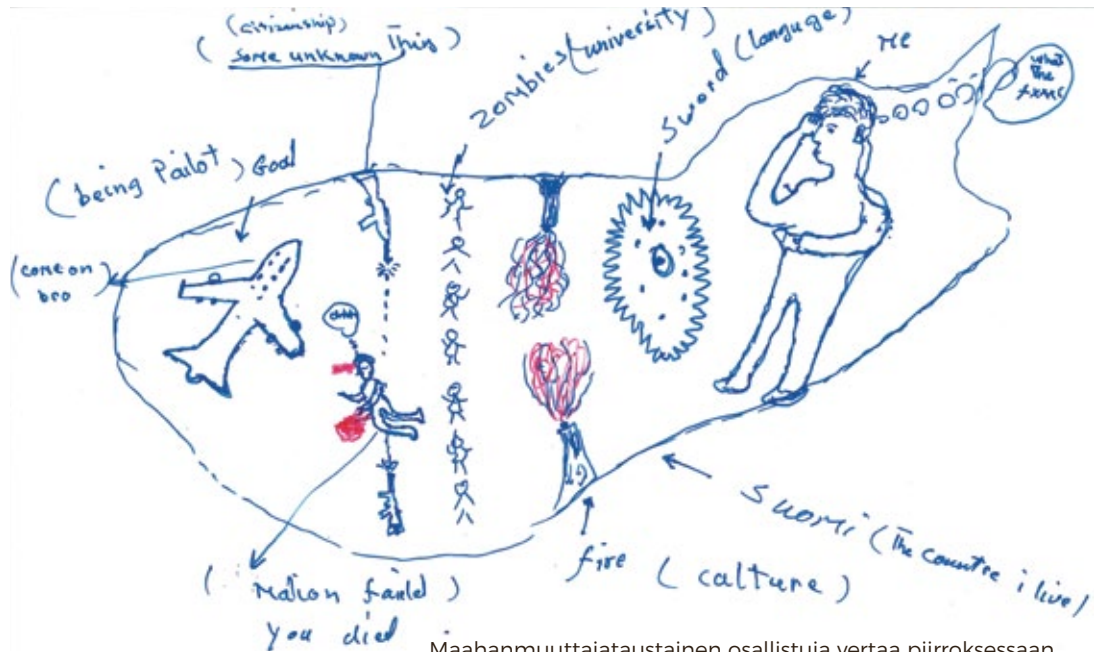 (citizenship)
(some unknown Thing)
zombies (university)
Sword (language)
Me
what
the
(being Pailot) Goal
(come on
bro)
ahhh
(Mation faield)
you died
fire (calture)
Suomi (The countre i live)
Maahanmuuttajataustainen osallistuja vertaa piirroksessaan